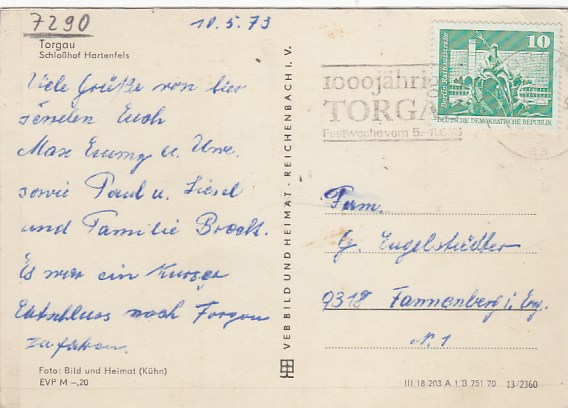 7290
10.5.73
Torgau
Schloßhof Hartenfels
Viele Grüße von hier
senden Euch
Max Emmy u. Uwe.
sowie Paul u. Liesel
und Familie Brock.
Es war ein kurzer
Entschluss nach Torgau
zu fahren.
Foto: Bild und Heimat (Kühn)
EVP M –,20
VEB BILD UND HEIMAT · REICHENBACH I. V.
1000jähri
TORGA
Festwoche vom 5.–11.6.
10
Berlin, Rathausstraße
DEUTSCHE DEMOKRATISCHE REPUBLIK
Fam.
G. Engelstädter
9318 Tannenberg i. Erz.
N. 1
III 18 203 A 1 B 751 70 13/2360